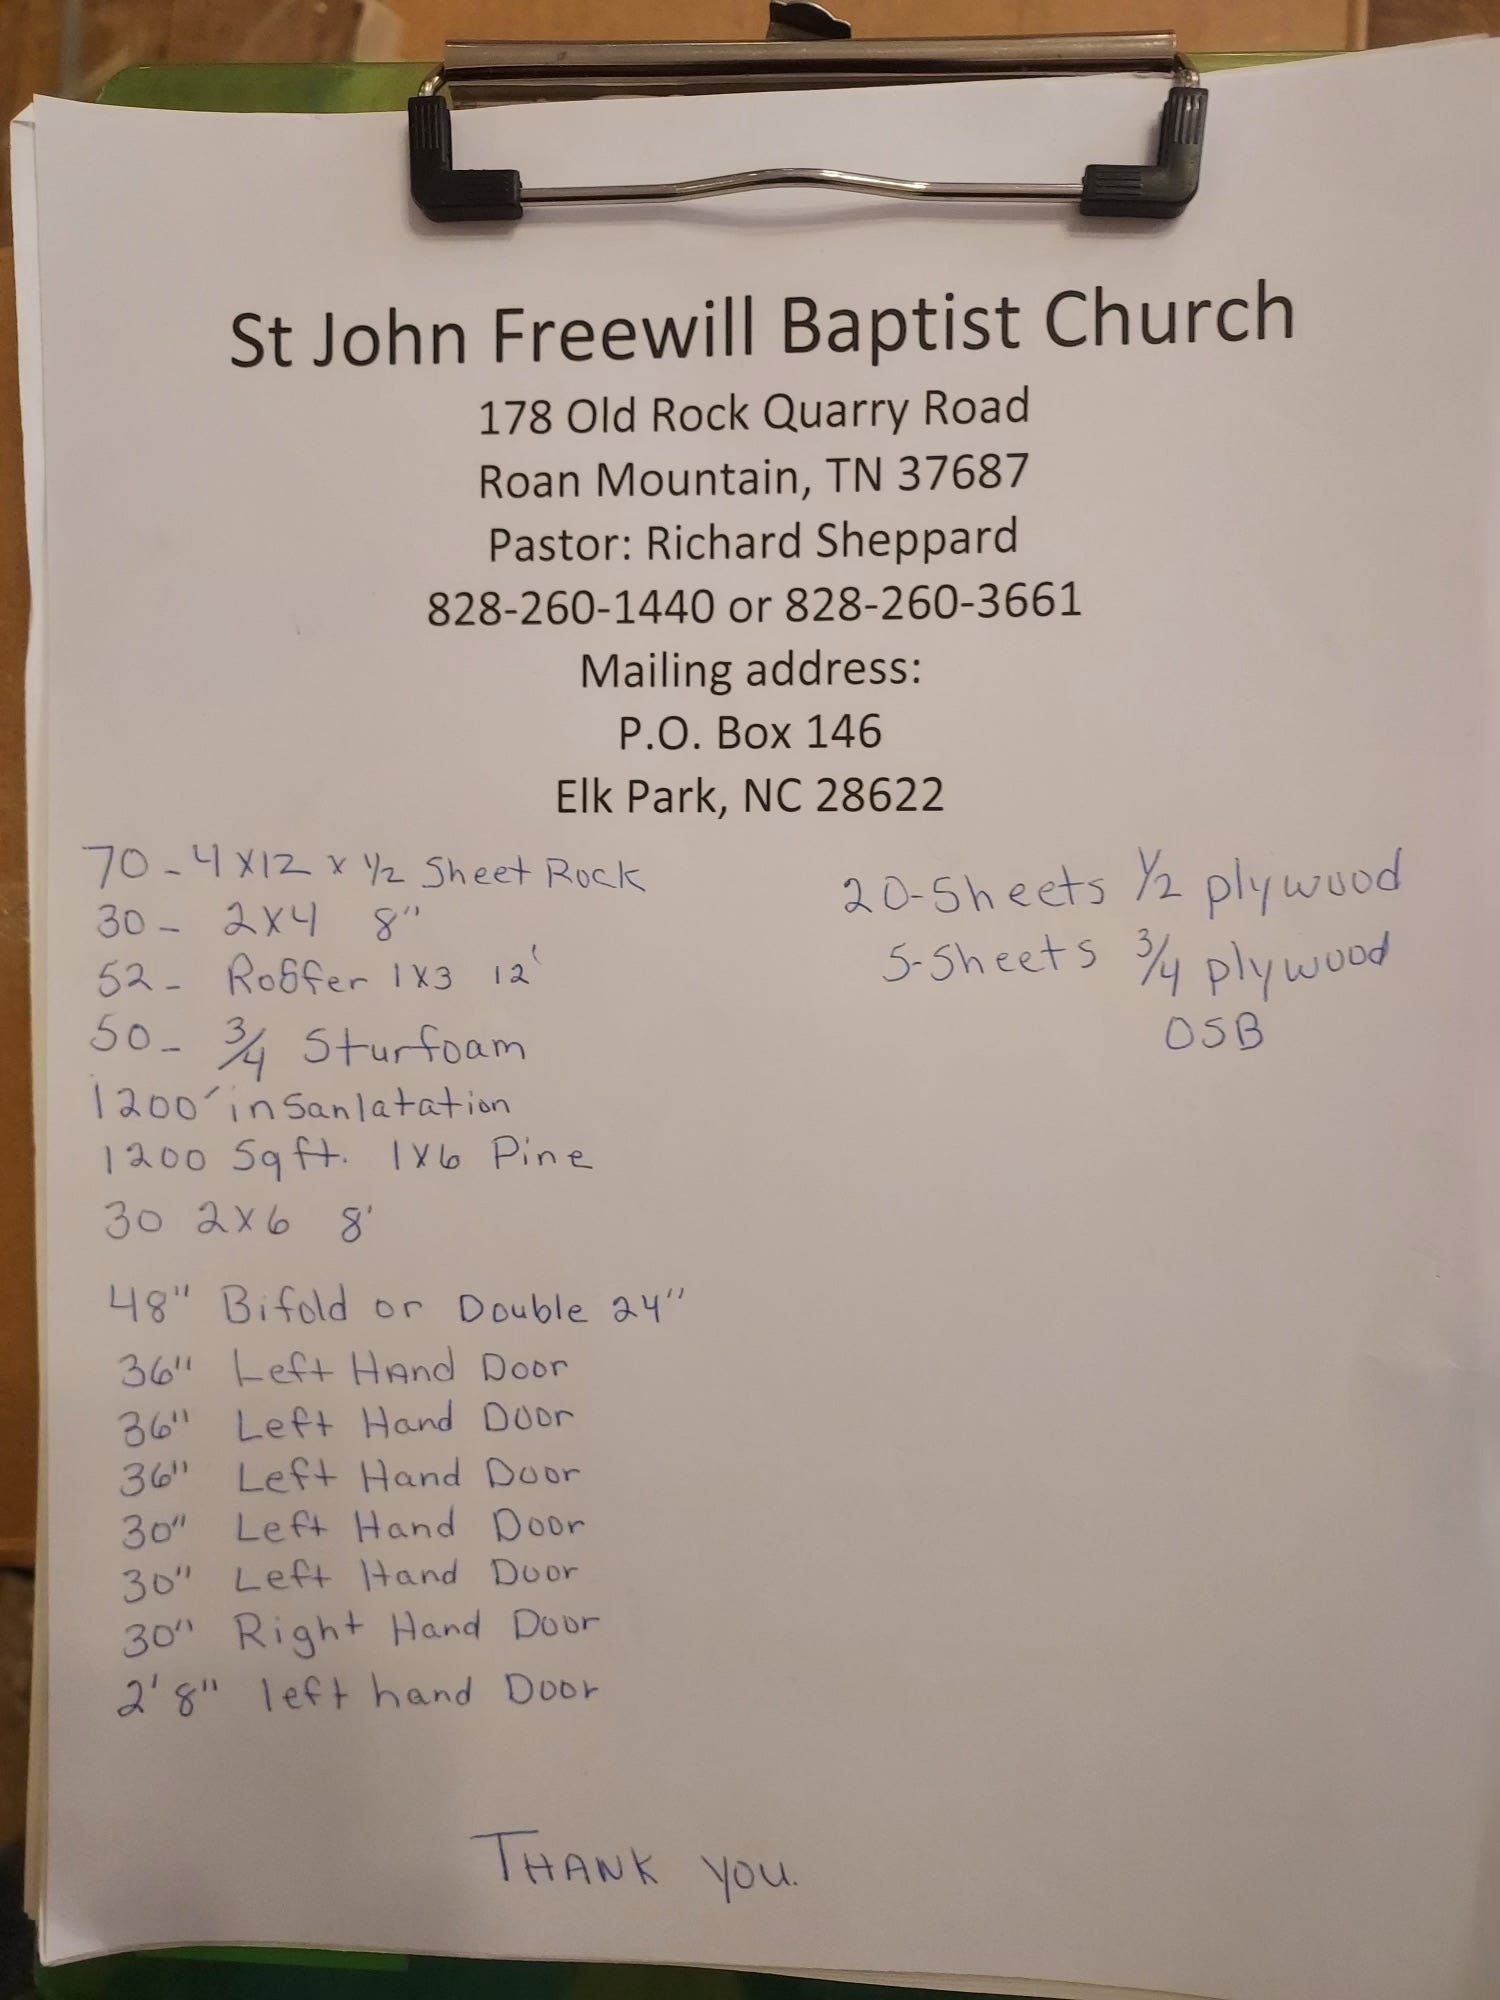 St John Freewill Baptist Church
178 Old Rock Quarry Road
Roan Mountain, TN 37687
Pastor: Richard Sheppard
828-260-1440 or 828-260-3661
Mailing address:
P.O. Box 146
Elk Park, NC 28622
70 - 4x12 x 1/2 Sheet Rock
30 - 2x4 8"
52 - Roffer 1x3 12'
50 - 3/4 Sturfoam
1200' insanlatation
1200 Sqft. 1x6 Pine
30 2x6 8'
48" Bifold or Double 24"
36" Left Hand Door
36" Left Hand Door
36" Left Hand Door
30" Left Hand Door
30" Left Hand Door
30" Right Hand Door
2'8" left hand Door
20-Sheets 1/2 plywood
5-Sheets 3/4 plywood
OSB
THANK YOU.